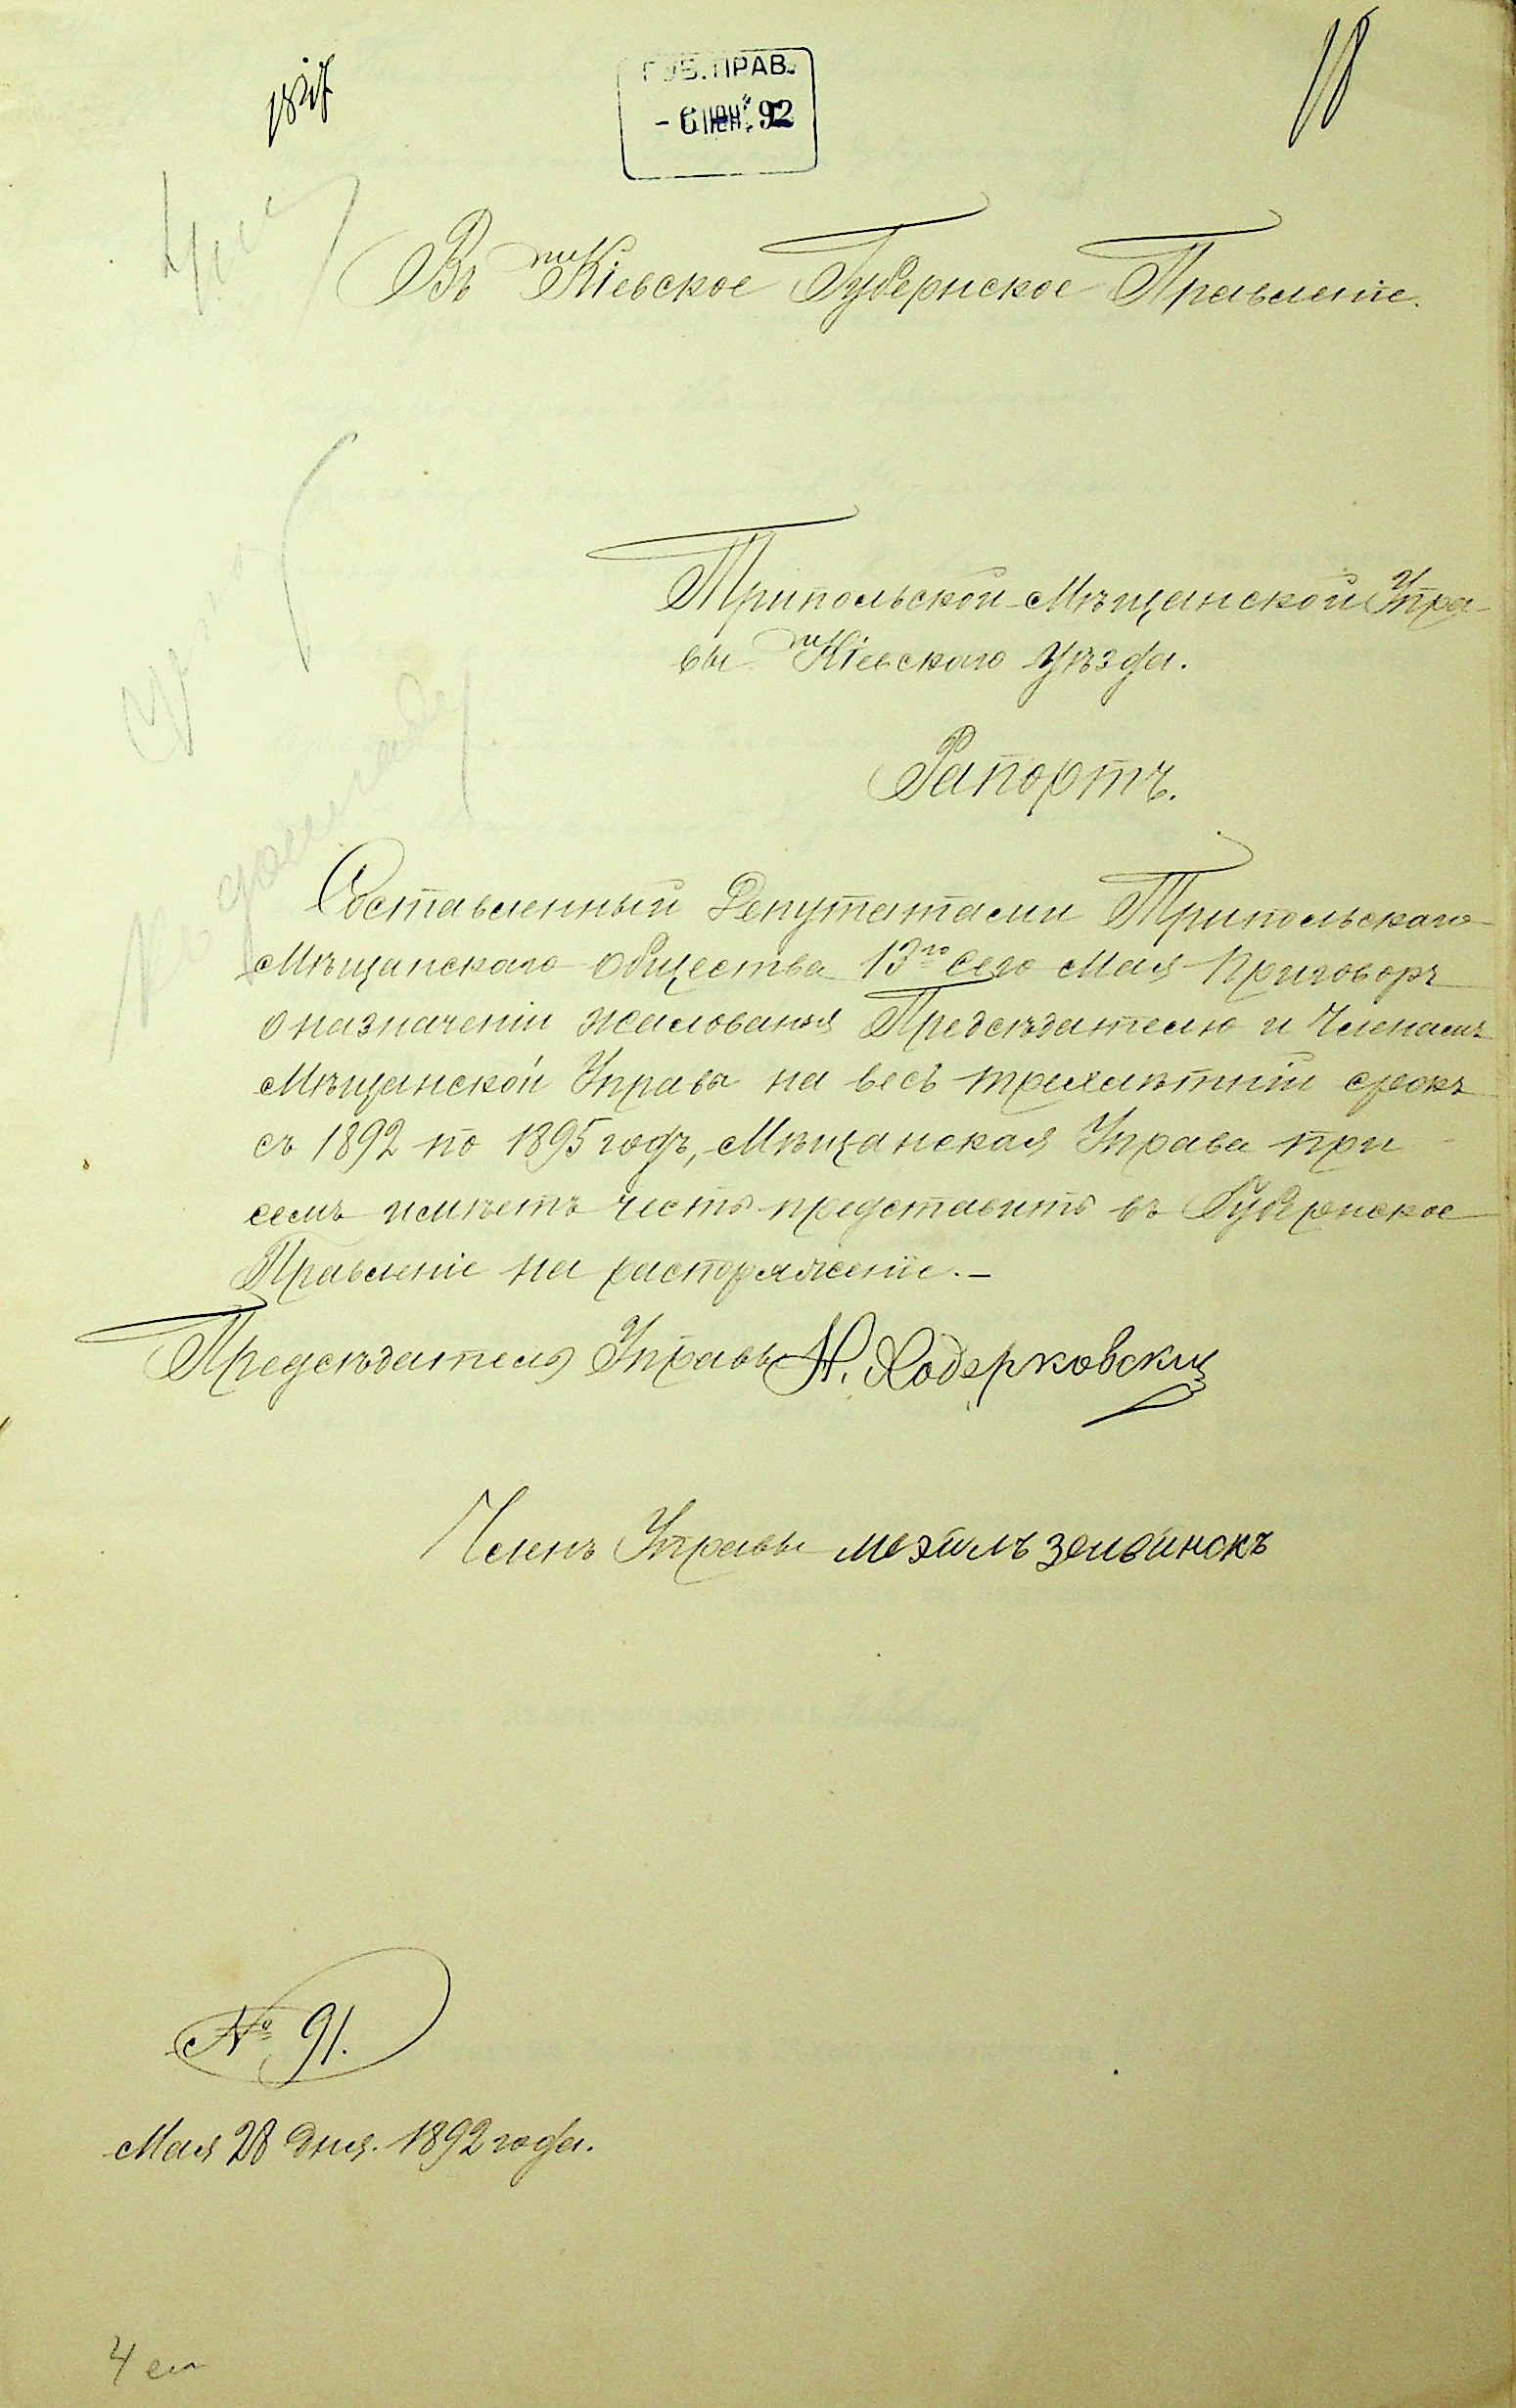 18
ГУБ. ПРАВ.
- 6 ІЮН. 92
Въ Кіевское Губернское Правленіе.
Трипольской Мѣщанской Упра-
вы Кіевскаго уѣзда.
Рапортъ.
Составленный Депутатами Трипольскаго
Мѣщанскаго Общества 13го сего Мая Приговоръ
о назначеніи жалованья Предсѣдателю и Членамъ
Мѣщанской Управы на весь трехлѣтній срокъ
съ 1892 по 1895 годъ, Мѣщанская Управа при
семъ имѣетъ честь представить въ Губернское
Правленіе на распоряженіе.-
Предсѣдатель Управы Н. Ходерковскій
Членъ Управы
№ 91.
Мая 28 дня. 1892 года.